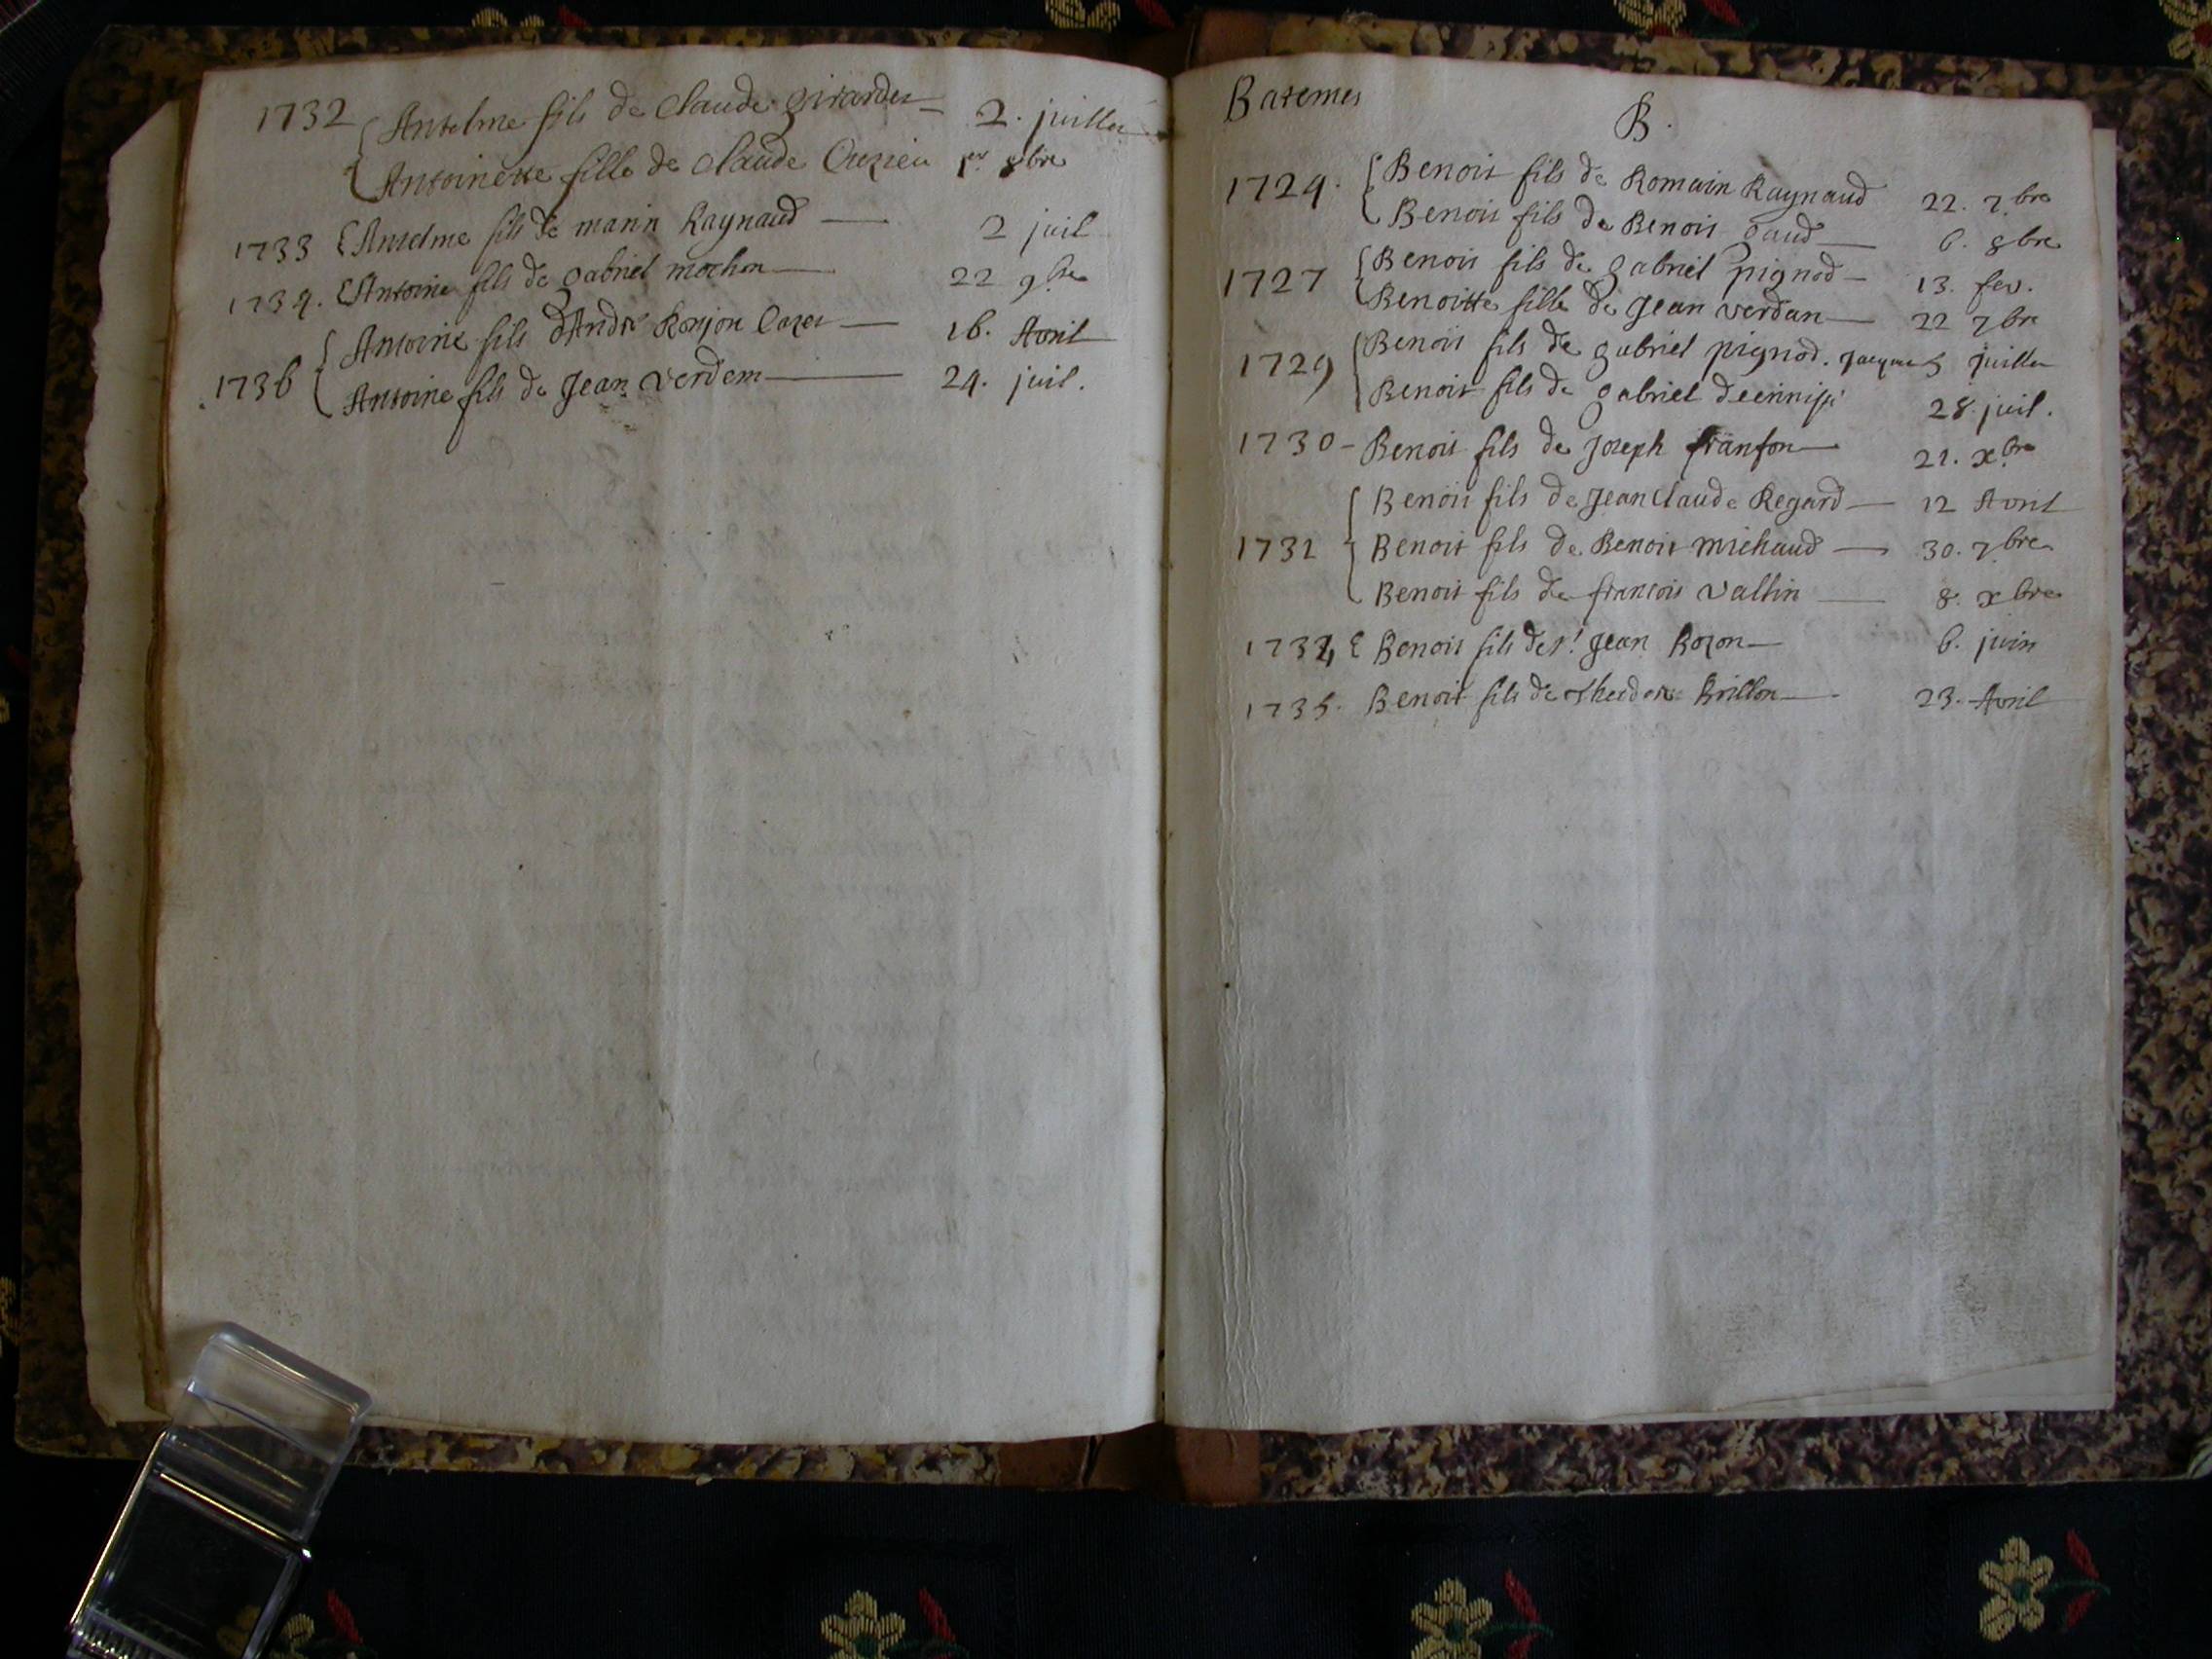 1732 Antelme fils de Claude girardet 2. juillet
Antoinette fille de Claude Cuzieu 1er 8bre
1733 Antelme fils de marin Raynaud 2 juil
1734. Antoine fils de gabriel mochon 22 9bre
Antoine fils d'André Ronjon Cazet 16. Avril
1736 Antoine fils de Jean Verdem 24. juil.
Batemes
B.
1724. Benoit fils de Romain Raynaud 22. 7bre
Benoit fils de Benoit gaud 6. 8bre
1727 Benoit fils de gabriel pignod 13. fev.
Benoitte fille de Jean verdan 22 7bre
1729 Benoit fils de gabriel pignod. Jacque 5 juillet
Benoit fils de gabriel 28. juil.
1730 - Benoit fils de Joseph franson 21. xbre
Benoit fils de Jean Claude Regard 12 Avril
1731 Benoit fils de Benoit michaud 30. 7bre
Benoit fils de francois vallin 8. xbre
Benoit fils de sr. Jean Bozon 6. juin
1735. Benoit fils de Brillon 23. Avril